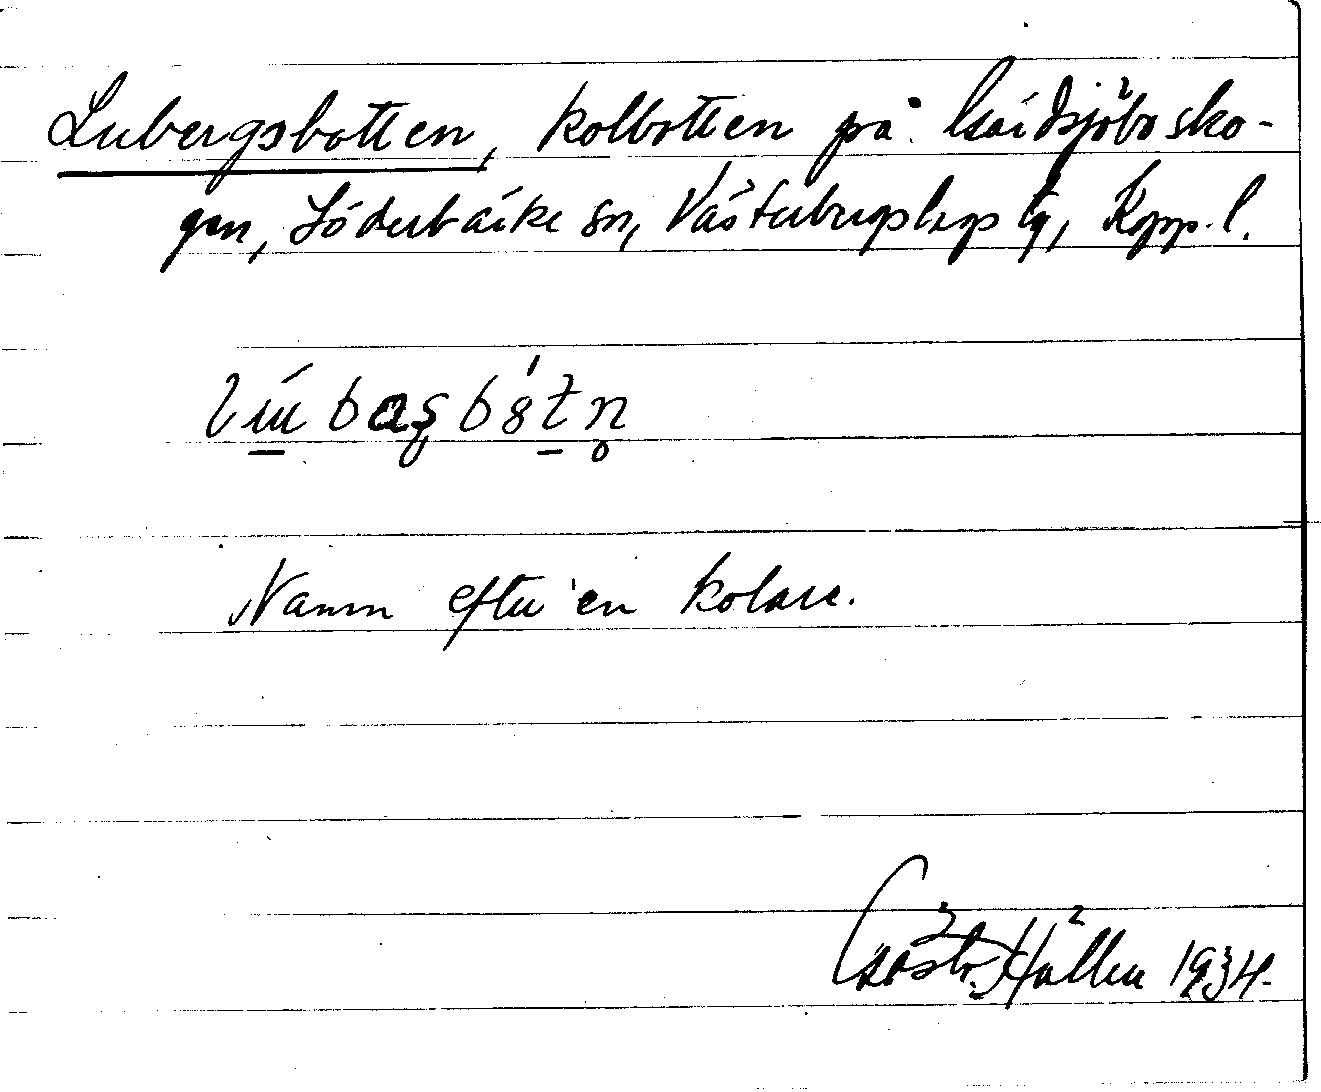 Lubergsbotten, kolbotten på Gäddsjöbo sko-
gen, Söderbärke sn, Västerbergslags tg, Kopp. l.
Namn efter en kolare.
Gösta Hallen 1934.